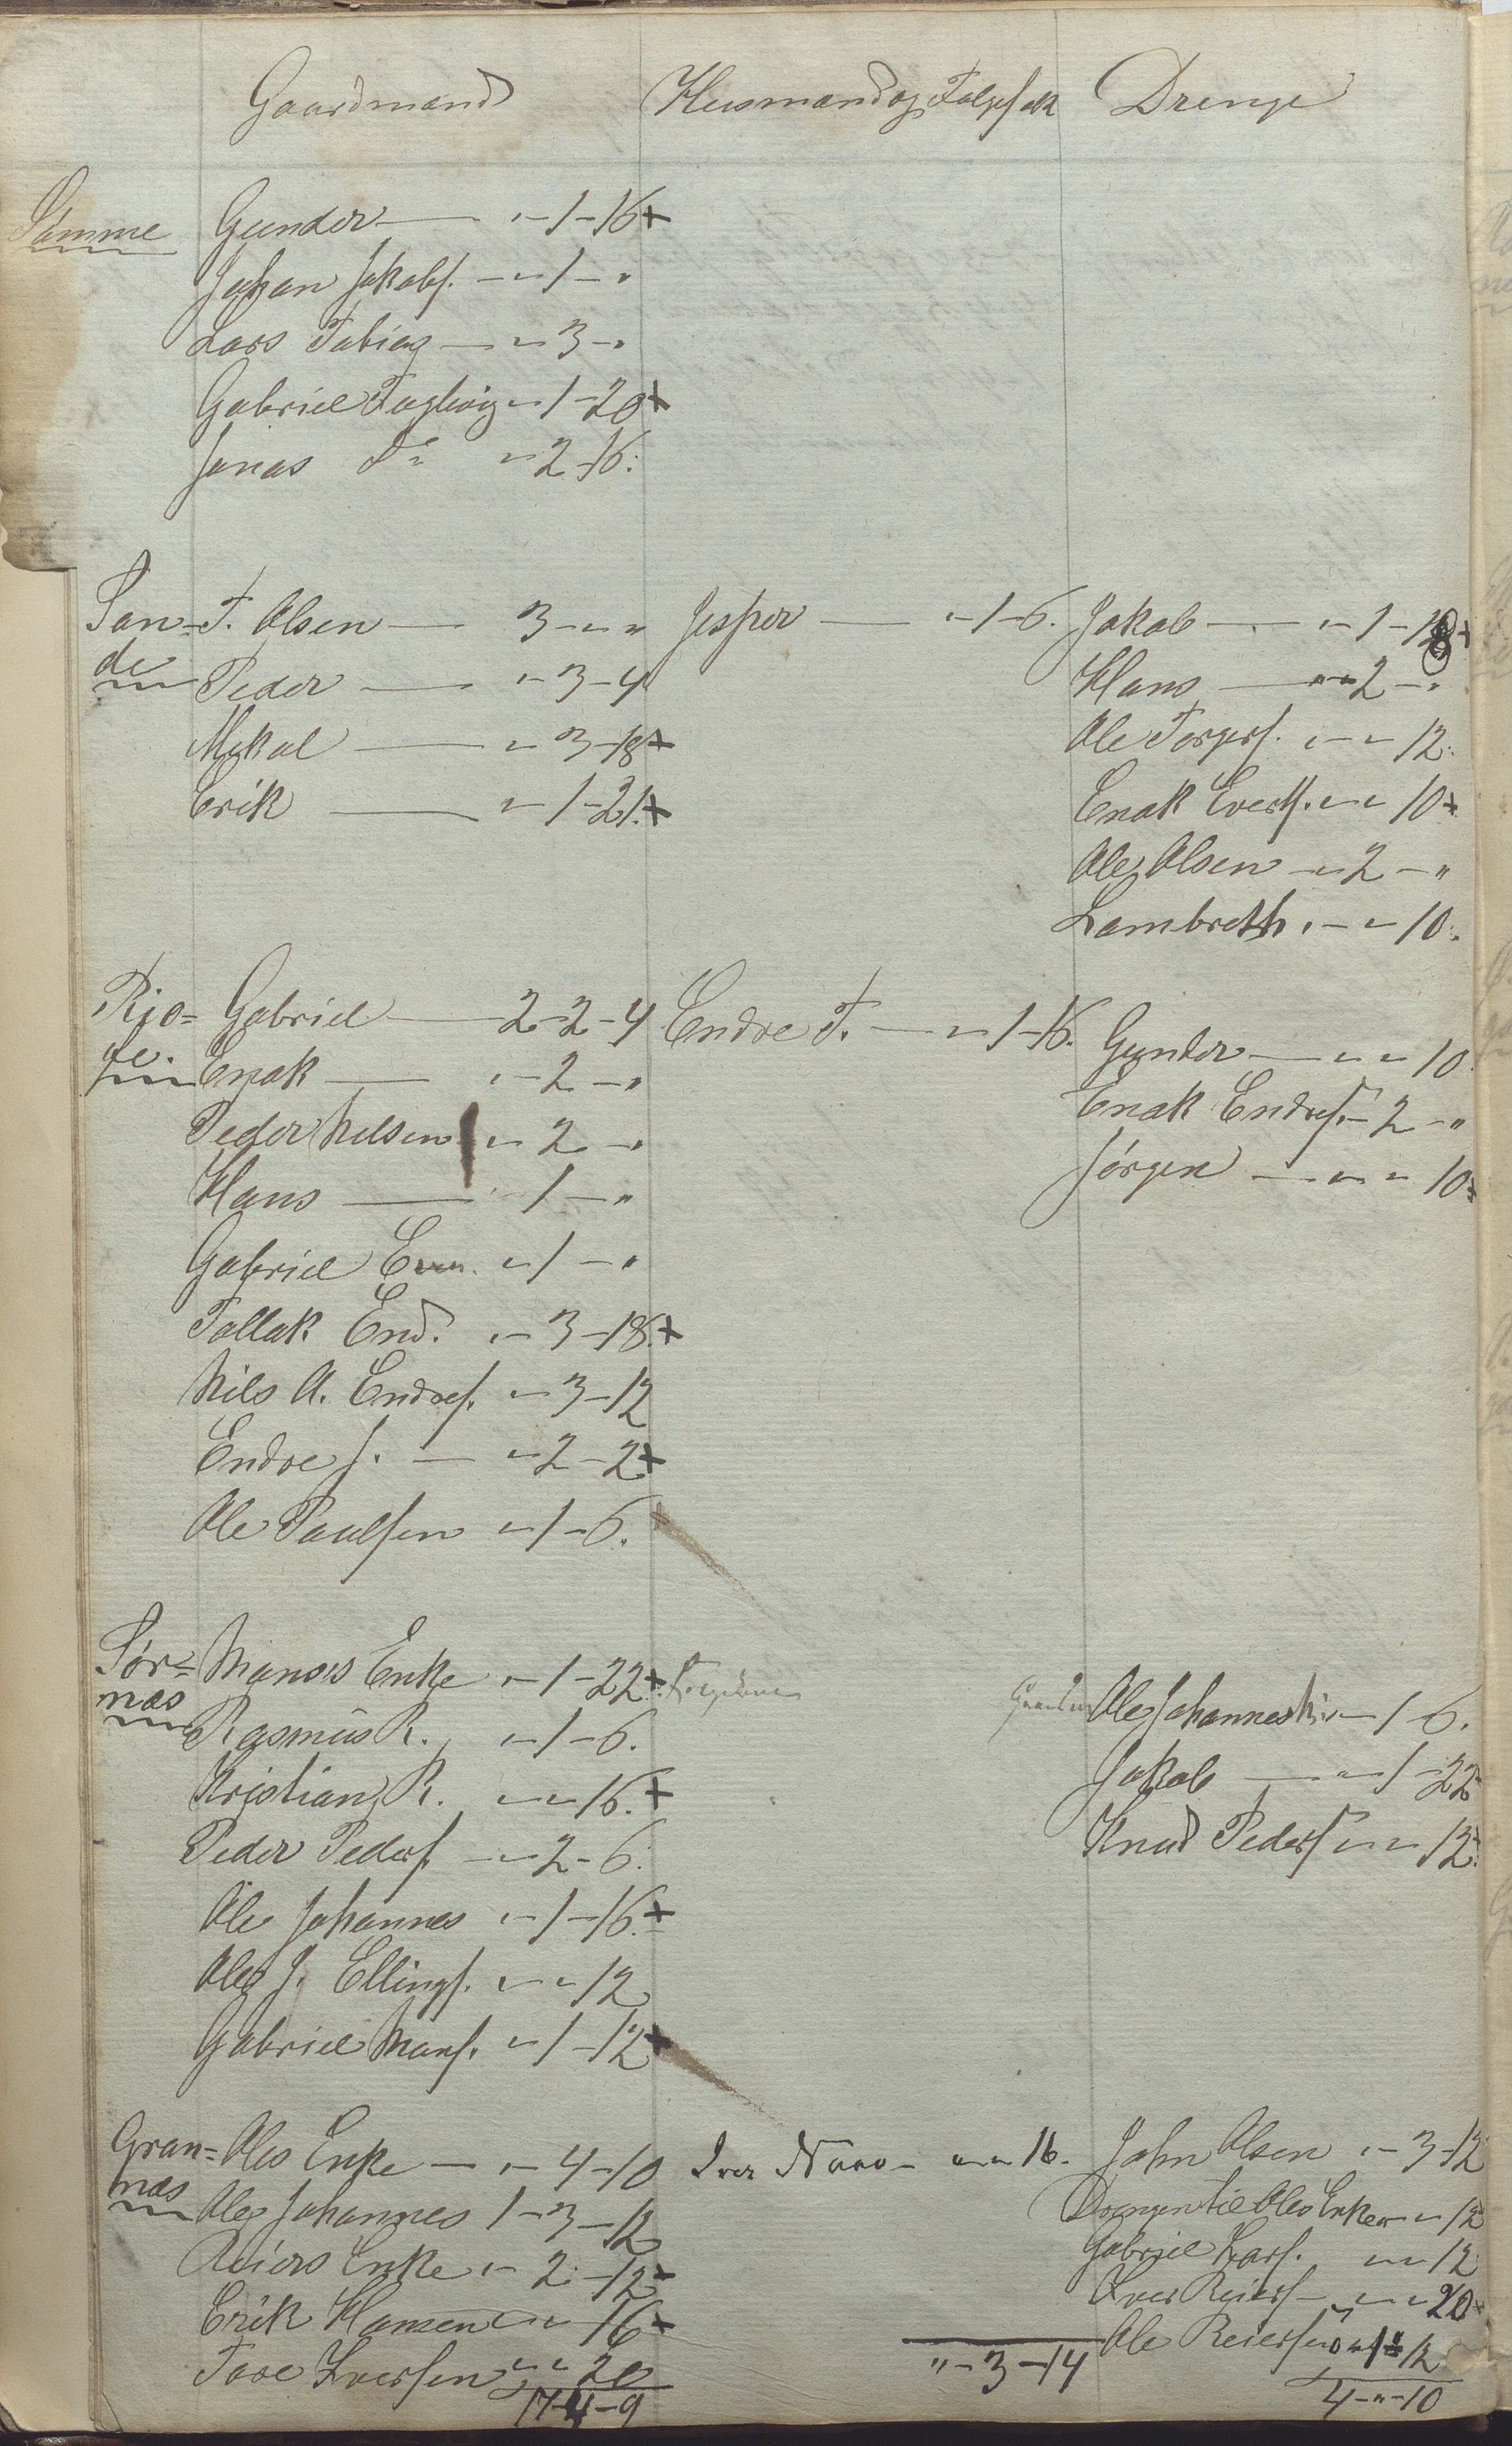 Gaardmænd Husmænd og Følgefolk Drenge
Sømme Gunder — "-1-16+
Johan Jakobs. — "-1-"
Lars Tobias — "-3-"
Gabriel "-1-20+
Jonas Do "-2-16.
San- T. Olsen — 3-"-" Jesper — "-1-6. Jakob — "-1-18+
de Peder — "-3-4 Hans — "-2-"
Mikal — "-3-18+ Ole Torgers. "-"-12.
Erik — "-1-21.+ Enok Everts. "-"-10+
Ole Olsen "-2-"
Lambreth "-"-10.
Rio- Gabriel — 2-2-4 Endre T. — "-1-16. Gunder — "-"-10.
Enok — "-2-" Enok Endres. "-2-"
Peder Nelsen "-2-" Jørgen — "-"-10+
Hans — "-1-"
Gabriel "-1-"
Tollak End. "-3-18.+
Nils A. Endres. "-3-12
Endre J. — "-2-2+
Ole Paulsen "-1-6.
Sør- Manses Enke "-1-22+ Ole Johannes "-1-6.
næs Rasmus R. "-1-6. Jakob — "-1-22
Kristian R. "-"-16.+ Knud Peders. "-"-12.
Peder Peders. "-2-6.
Ole Johannes "-1-16.+
Ole J. Ellings. "-"-12
Gabriel Mans. "-1-12+
Gran- Oles Enke — "-4-10 Iver "-"-16. John Olsen "-3-12
næs Ole Johannes 1-3-12 Drengen til Oles Enke "-"-12
Reiers Enke "-2-12+ Gabriel "-"-12
Erik Hansen "-"-16+ Iver Reiers. "-"-20+
Tore Iversen "-"-20 "-3-14 Ole Reiersen "-1-12
17-4-9 4-"-10